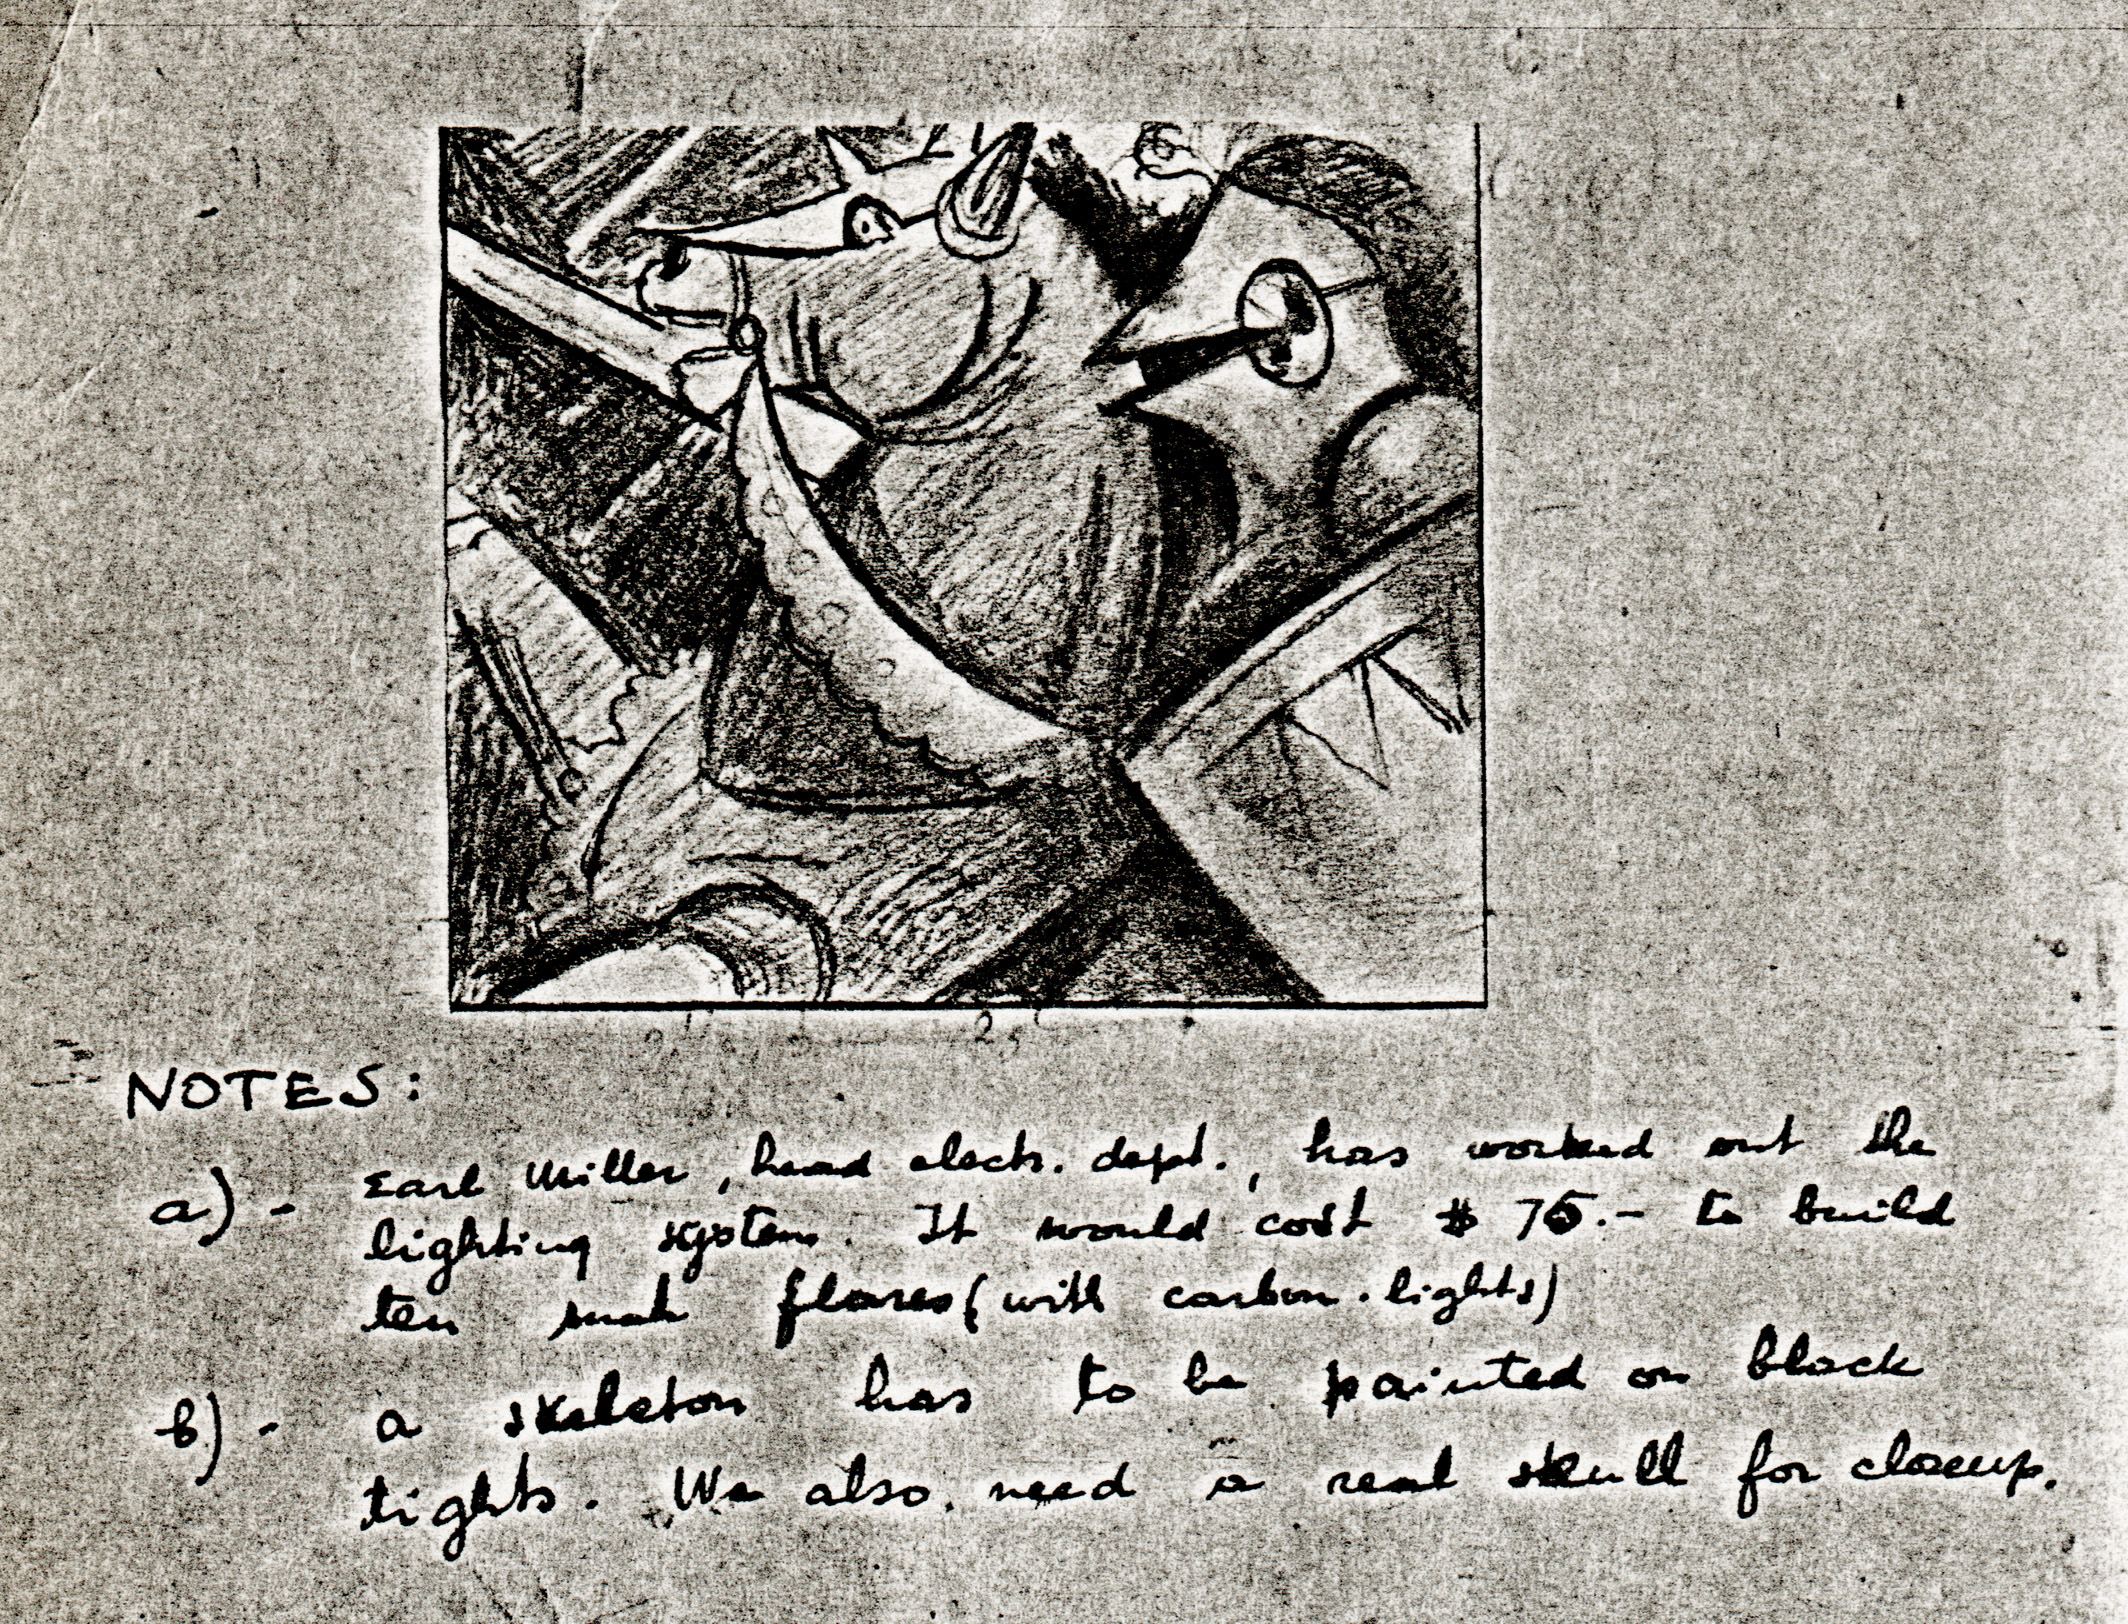 NOTES:
a) - Earl Miller, head elect. dept., has worked out the
lighting system. It would cost $ 75.- to build
ten such flares (with carbon-lights)
b) - a skeleton has to be painted on black
tights. We also need a real skull for closeup.